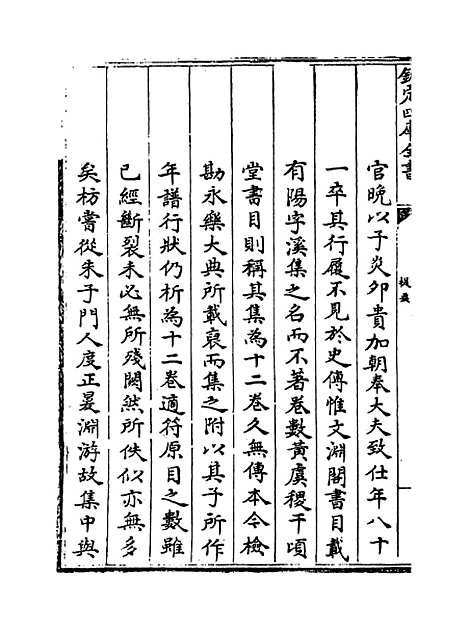 欽定四庫全書
提要
官晚以子炎卯貴加朝奉大夫致仕年八十
一卒其行履不見於史傳惟文淵閣書目載
有陽字溪集之名而不著卷數黃虞稷千頃
堂書目則稱其集為十二卷久無傳本今檢
勘永樂大典所載裒而集之附以其子所作
年譜行狀仍析為十二卷適符原目之數雖
已經斷裂未必無所殘闕然所佚似亦無多
矣枋嘗從朱子門人度正㬊淵游故集中與